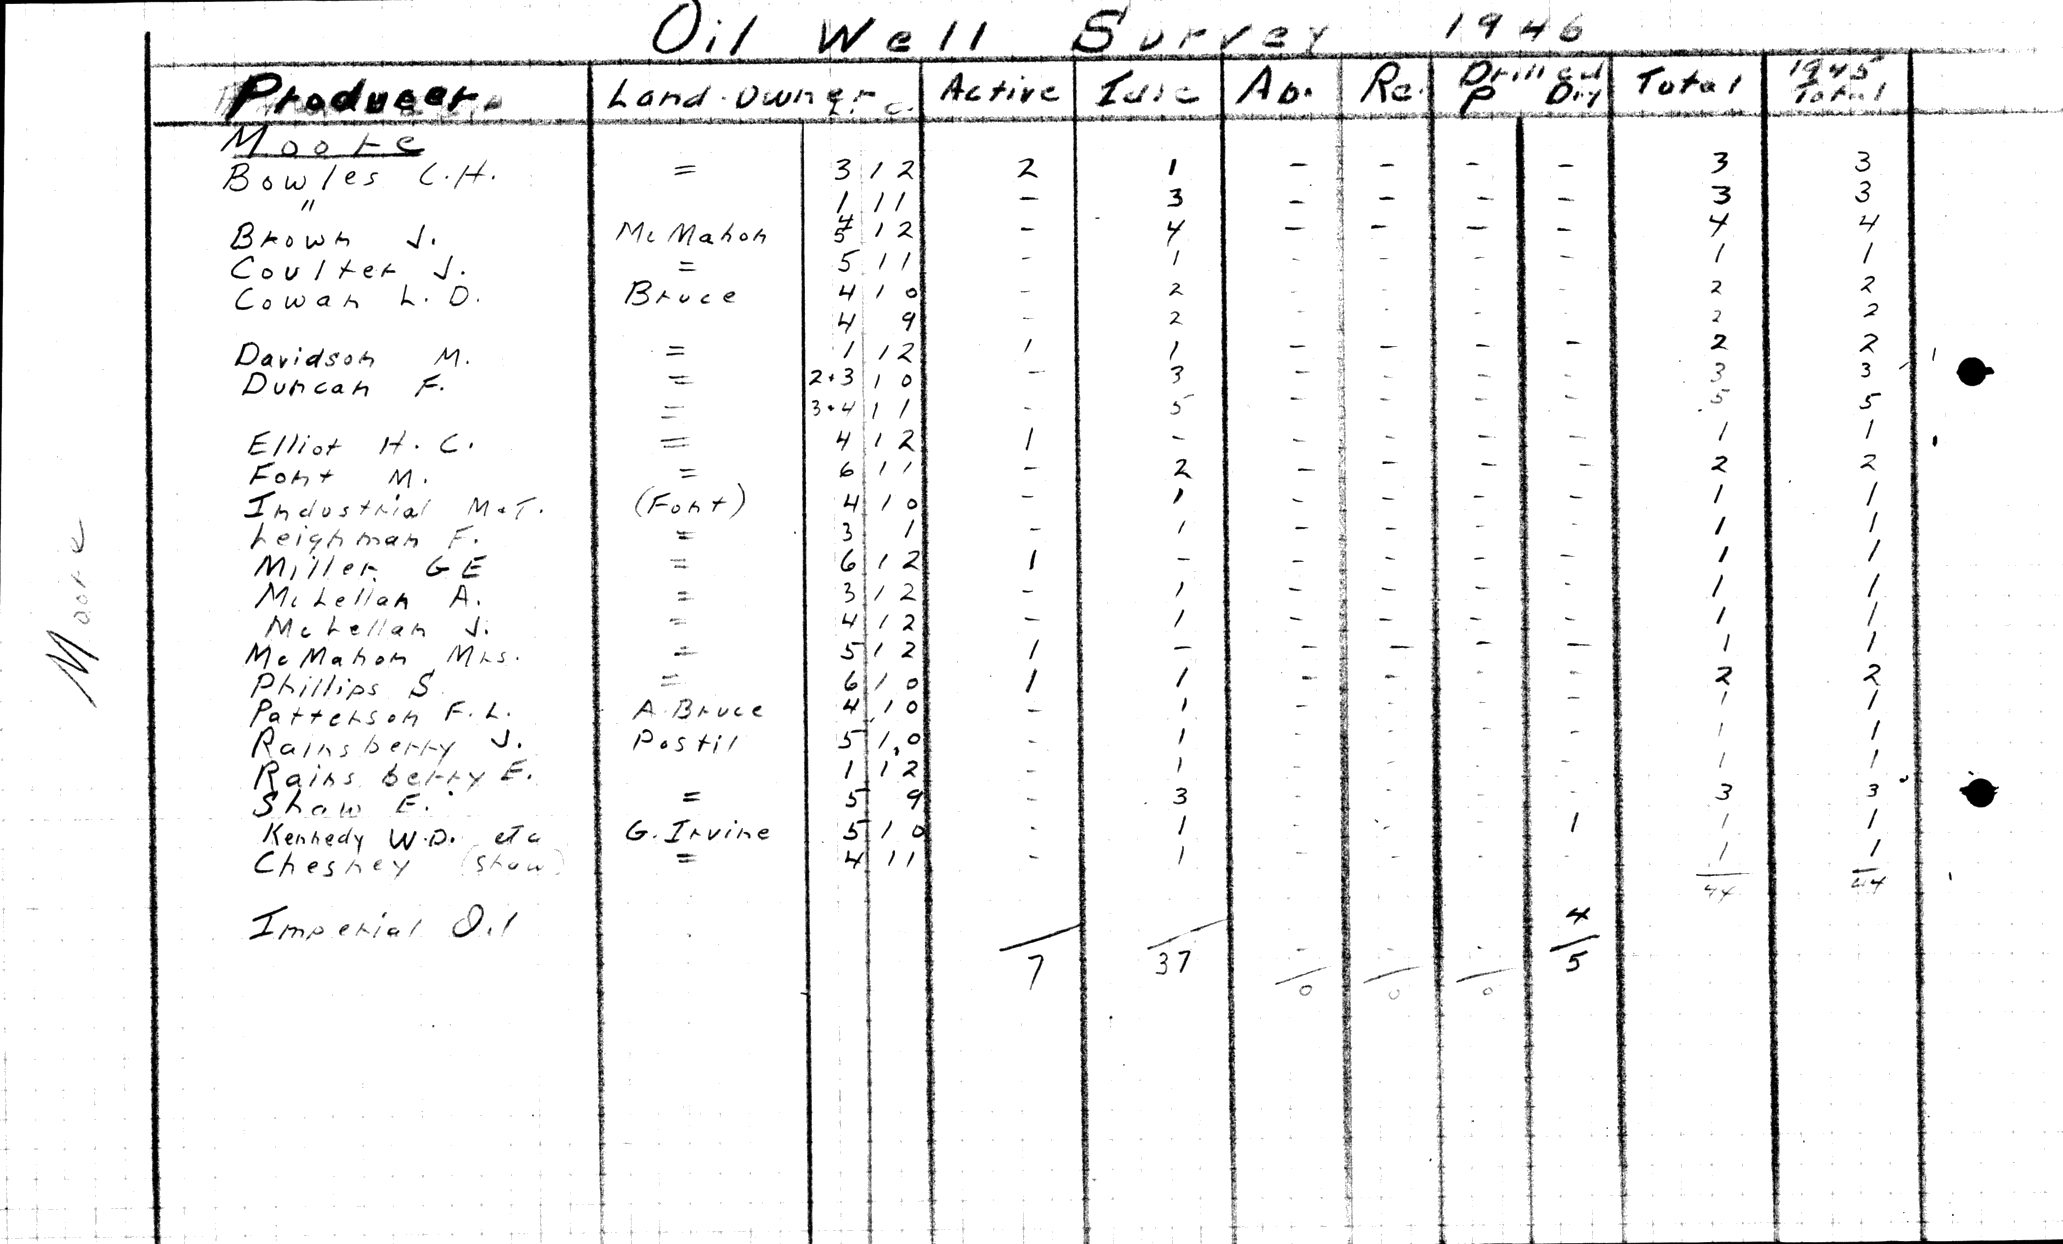 Oil Well Survey 1946
Producer Land-Owner L. C. Active Idle Ab. Re. Drilled P Dry Total 1945 Total
Moore
Bowles C.H. = 3 12 2 1 - - - - 3 3
" 1 11 - 3 - - - - 3 3
Brown J. McMahon 5 12 - 4 - - - - 4 4
Coulter J. = 5 11 - 1 - - - - 1 1
Cowan L.D. Bruce 4 10 - 2 - - - - 2 2
4 9 - 2 - - - - 2 2
Davidson M. = 1 12 1 1 - - - - 2 2
Duncan F. = 2+3 10 - 3 - - - - 3 3
= 3+4 11 - 5 - - - - 5 5
Elliot H.C. = 4 12 1 - - - - - 1 1
Font M. = 6 11 - 2 - - - - 2 2
Industrial M.T. (Font) 4 10 - 1 - - - - 1 1
Leighman F. = 3 1 - 1 - - - - 1 1
Miller G E = 6 12 1 - - - - - 1 1
McLellan A. = 3 12 - 1 - - - - 1 1
McLellan J. = 4 12 - 1 - - - - 1 1
McMahon Mrs. = 5 12 1 - - - - - 1 1
Phillips S = 6 10 1 1 - - - - 2 2
Patterson F.L. A. Bruce 4 10 - 1 - - - - 1 1
Rainsberry J. Postil 5 10 - 1 - - - - 1 1
Rainsberry E. 1 12 - 1 - - - - 1 1
Shaw E. = 5 9 - 3 - - - - 3 3
Kennedy W.D. etc G. Irvine 5 10 - 1 - - - 1 1 1
Chesney (Shaw) = 4 11 - 1 - - - - 1 1
44 44
Imperial Oil - - - 4
7 37 0 0 0 5
Moore